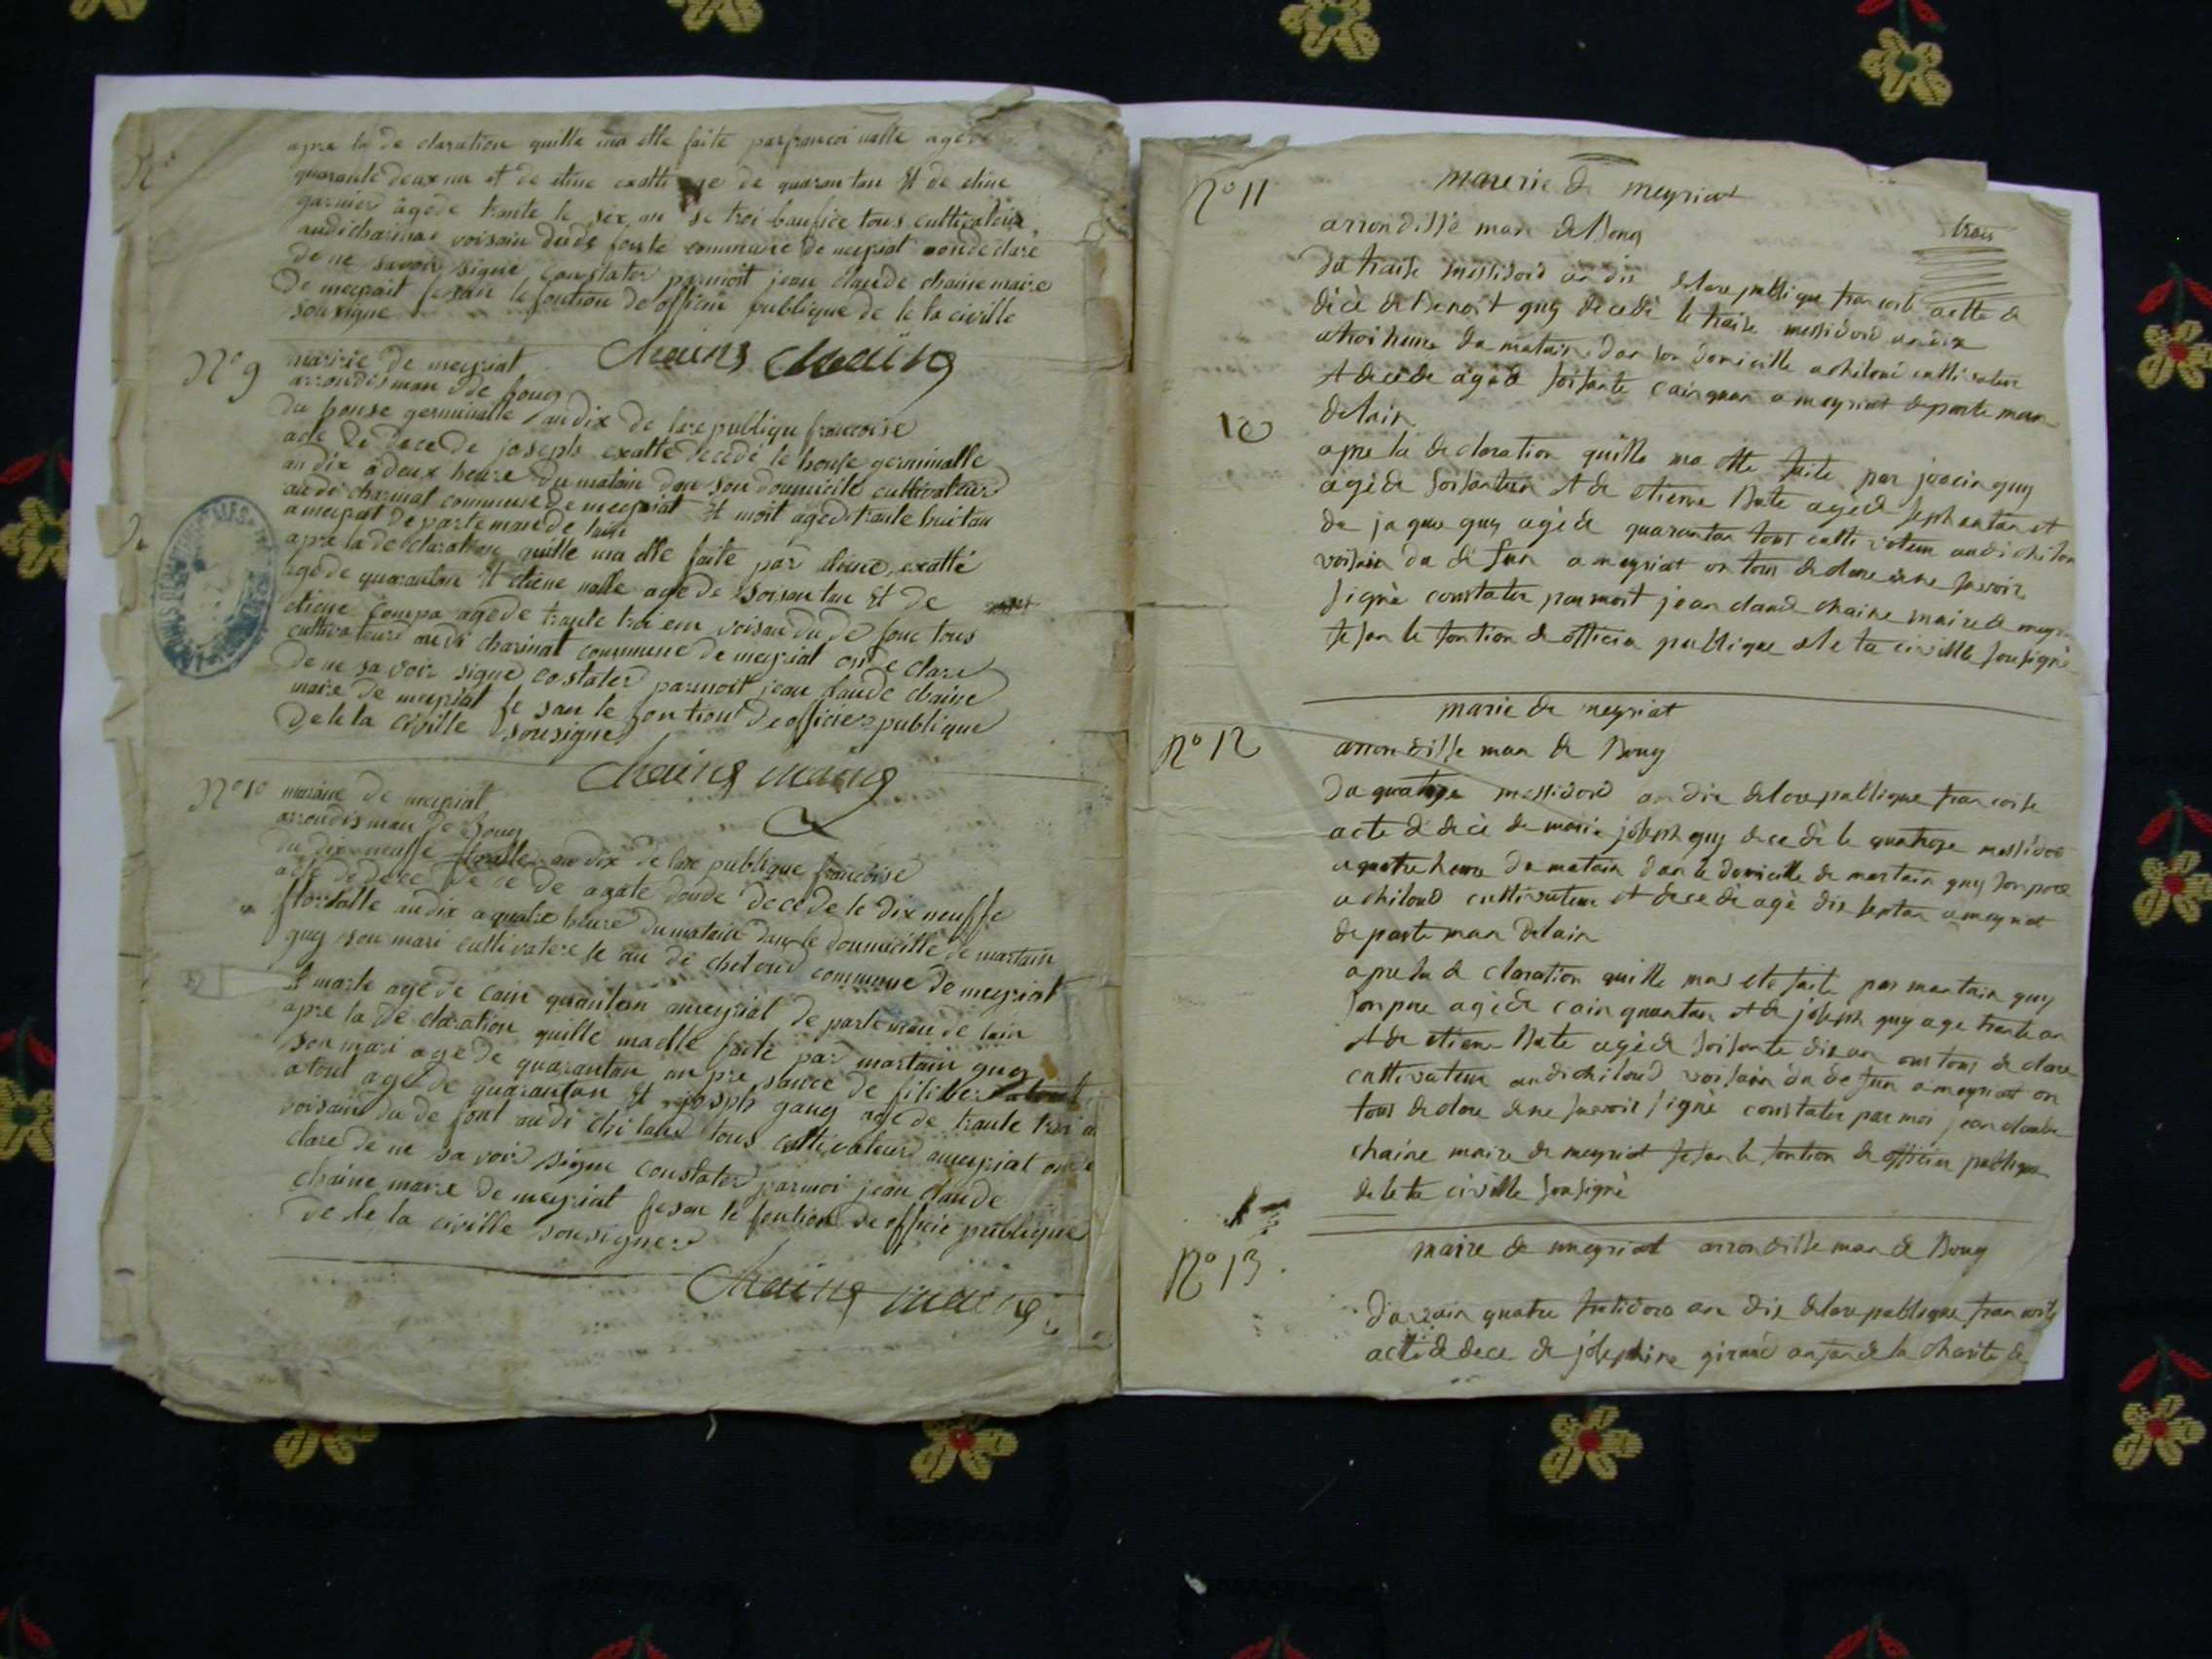 apre la de claration quille ma ette faite par francoi valle age de
quarante deux an et de etine exatte age de quarantan Et de etine
garnier âgede trante le six an se troi
audi charinat voisain dude font commune de meyriat aonde clare
de ne savoir signe constater parmoit jean claude chaine maire
De meyriat fesan le fontion de officie publique de le ta civille
sousigne
chaine maire
N° 9
mairie de meyriat
arrondisman de bourg
Du honse germinalle an dix de lare publique francoise
acte de decede joseph exatte decede le honse germinalle
an dix a deux heure Du matain dan son doumicile cultivateur
audi charinat commune de meyriat Et mort agede trante huitan
a meyriat de partemande lain
apre la de claration quille ma elle faite par etiene exatte
agede quarantan Et etiene valle age de soisantan Et de
etiene compa agede trante troi an voisan du de font tous
cultivateure audi charinat commune de meyriat onde clare
de ne sa voir signe costater parmoit jean claude chaine
maire de meyriat fe san le fontion de officier publique
de le ta civille sousigne
chaine maire
N° 10
mairie de meyriat
arroudisman de bourg
du dix neuffe floralle an dix de lare publique francoise
acte de dece de de agate donde decede le dix neuffe
florialle andix a quatre heure dumatain dan le doumicille de martain
guy son mari cultivatere se au di chiloud commune de meyriat
Et morte agede cain quantan ameyriat de parteman de lain
apre la de claration quille ma elle faite par martain guy
son mari age de quarantan an pre sance de filiber atout
atout agede quarantan Et joseph gauy age de trante troi an
voisain du de font audi chi loud tous cultivateur ameyriat on de
clare de ne sa voir signe constater parmoi jean claude
chaine maire de meyriat fesan le fontion de officie publique
de le ta civille sousigner
chaine maire
N° 11
mairie de meyriat
trois
arrondisse man de Bourg
du traise messidord an dix delare publique francoise actte de
décè de Benoit guy decedé le traise messidord an dix
atroi heure du matain dan son domicille achiloud cultivateur
et decede agéde soisante cainquan a meyriat departe man
delain
10
apre la de claration quille ma ette faite par joacin guy
agéde soisantan et de etienne Bate agede sephantan et
de jaque guy agéde quarantan tous cultivateur audi chilou
voisain du defun a meyriat on tous declare dene savoir
signè constater parmoit jean claude chaine maire de meyri
fesan le fontion de officia publique dele ta civille sousignè
marie de meyriat
N° 12
arrondisse man de Bourg
du quatorge messidord an dix delarepublique francoise
acte de dècè de marie joseph guy decedè le quatroze messidor
a quatre heure du matain dan le domicille de martain guy son pere
a chiloud cultivateur et decedè agè dix septan a meyriat
de parte man delain
apre la de claration quille mas ete faite par martain guy
son pere agéde cainquantan et de joseph guy age trante an
et de etiene Bate agéde soisante disan ons tous de clare
cultivateur audi chiloud voisain du de fun a meyriat on
tous declare dene savoir signè constater par moi jean claude
chaine maire de meyriat fesan le fontion de officier publique
de le ta civille sousignè
N° 13
maire de meyriat arrondisse man de Bourg
du vain quatre frutidoro an dix delarepublique francoise
acte de dece de jósephine giraud anfan de la charite de